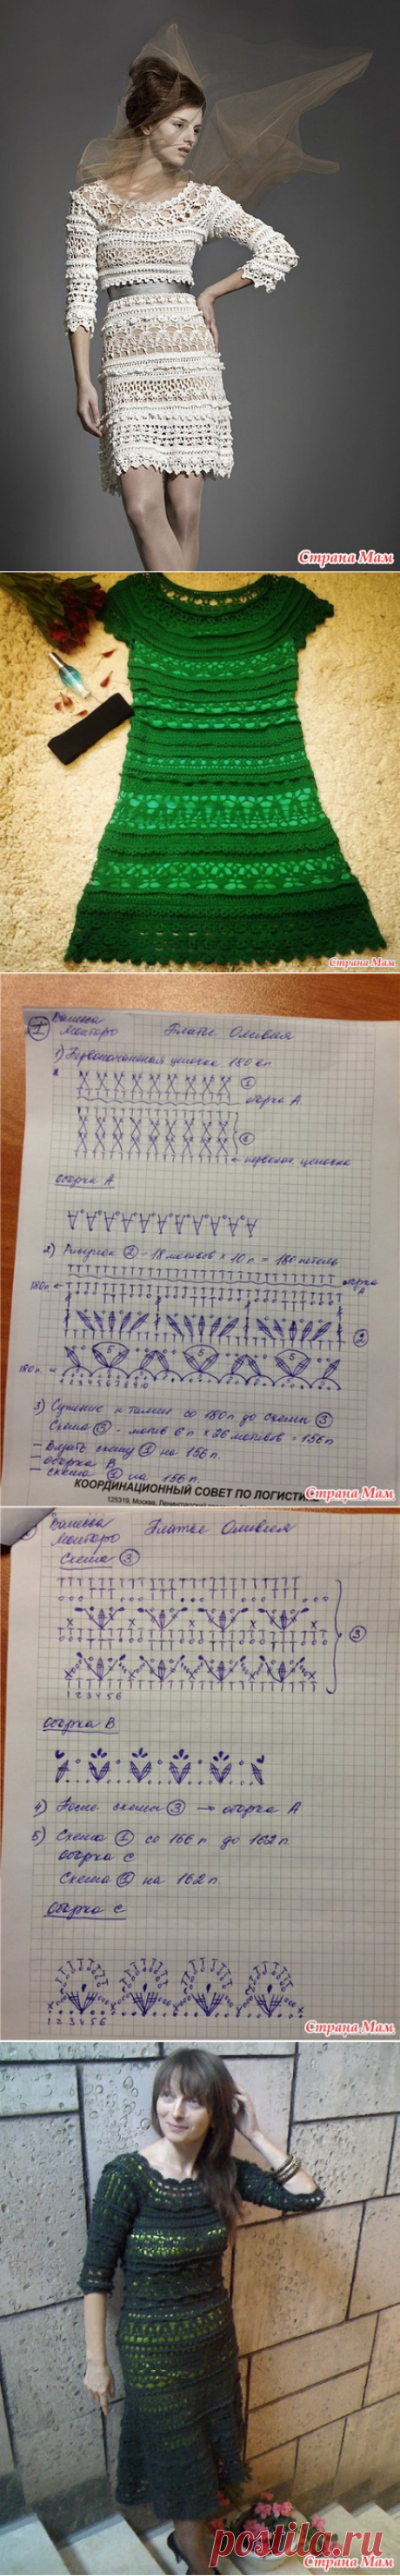 Страна Мам
Страна Мам
1 Ванесса
Монторо Платье Оливия
1) Первоначальная цепочка 180 вп
1
оборка А.
1
первонач. цепочка
оборка А
2) Рисунок 2 - 18 мотивов х 10 п = 180 петель
180п
оборка А
2
5 5 5
180п.
1 2 3 4 5 6 7 8 9 10
3) Сужение к талии со 180п до схемы 3
Схема 3 - мотив 6п х 26 мотивов = 156п
- Вязать схему 1 на 156п.
- оборка В
- схема 1 на 156п.
КООРДИНАЦИОННЫЙ СОВЕТ ПО ЛОГИСТИКЕ
125319, Москва,
Страна Мам
Ванесса
Монторо Платье Оливия
Схема 3
3
1 2 3 4 5 6
Оборка В
4) После схемы 3 → оборка А
5) Схема 1 со 156п до 162п.
оборка С
Схема 1 на 162п.
Оборка С
1 2 3 4 5 6
Страна Мам
Страна Мам
postila.ru